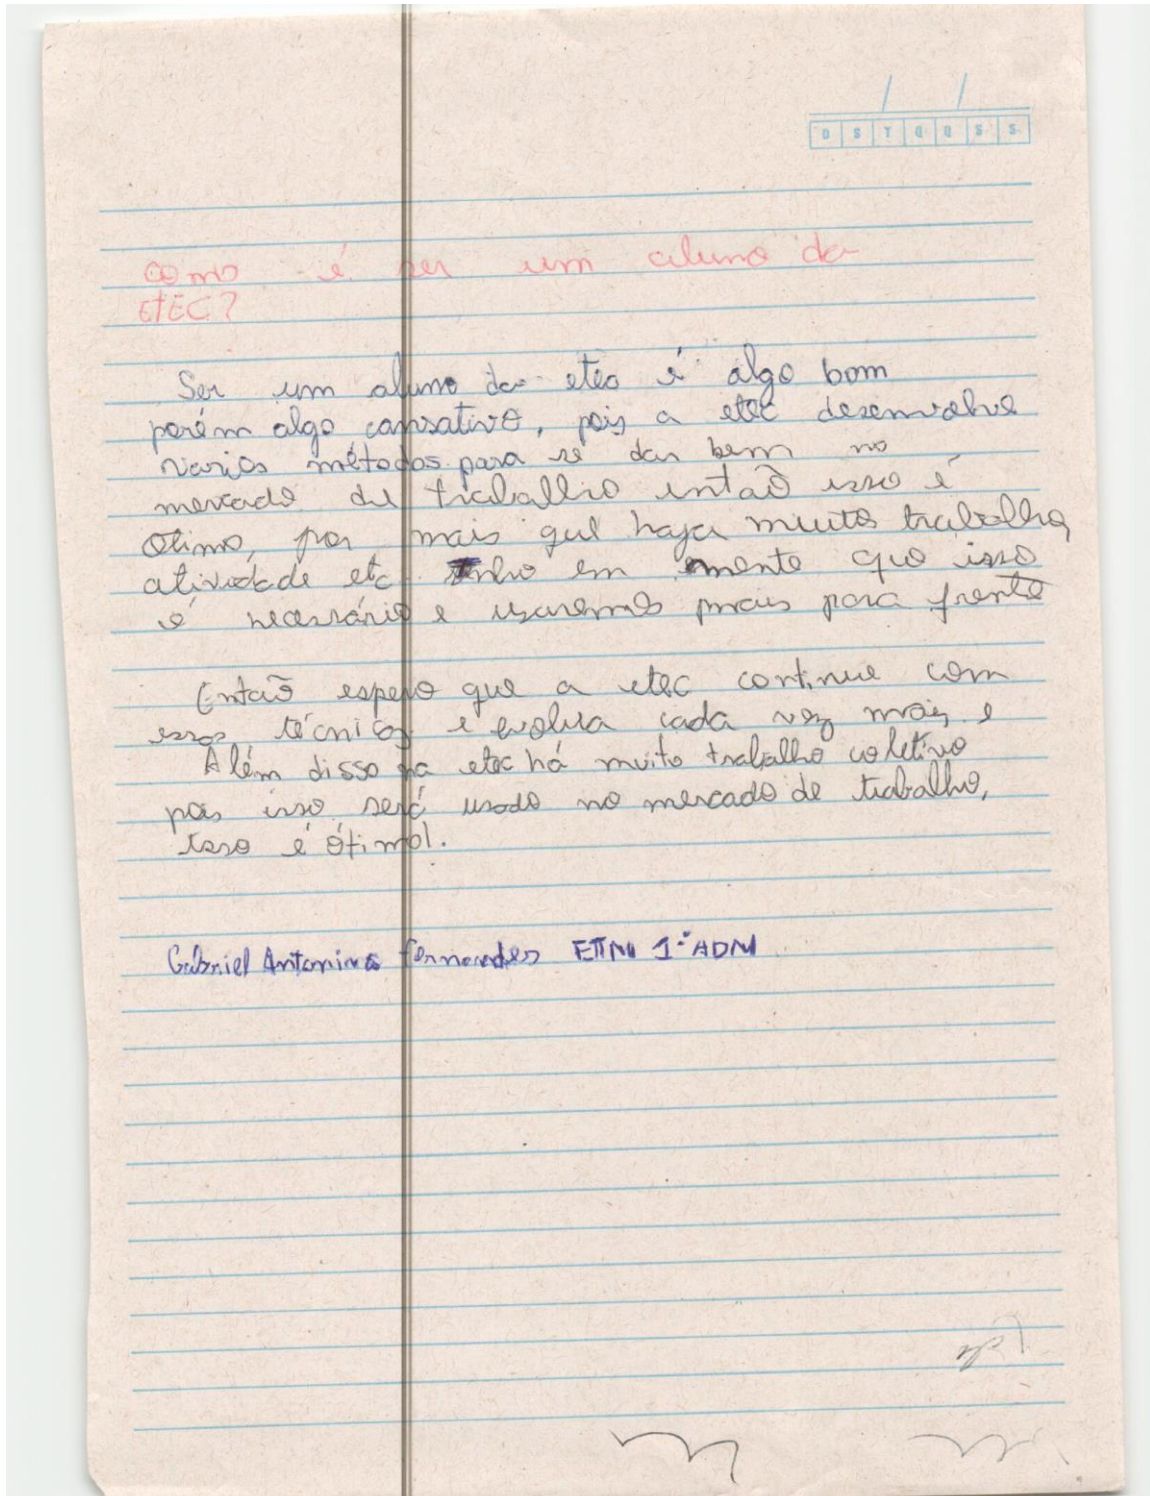 D S T Q Q S S
como é ser um aluno da
ETEC?
Ser um aluno da etec é algo bom
porém algo cansativo, pois a etec desenvolve
varios métodos para se dar bem no
mercado de trabalho então isso é
otimo, por mais que haja muito trabalho,
atividade etc tenho em mente que isso
é necessário e usaremos mais para frente
Então espero que a etec continue com
essas técnicas e evolua cada vez mais, e
Além disso na etec há muito trabalho coletivo
pois isso será usado no mercado de trabalho,
Isso é ótimo!.
Gabriel Antonino Fernandes ETIM 1º ADM